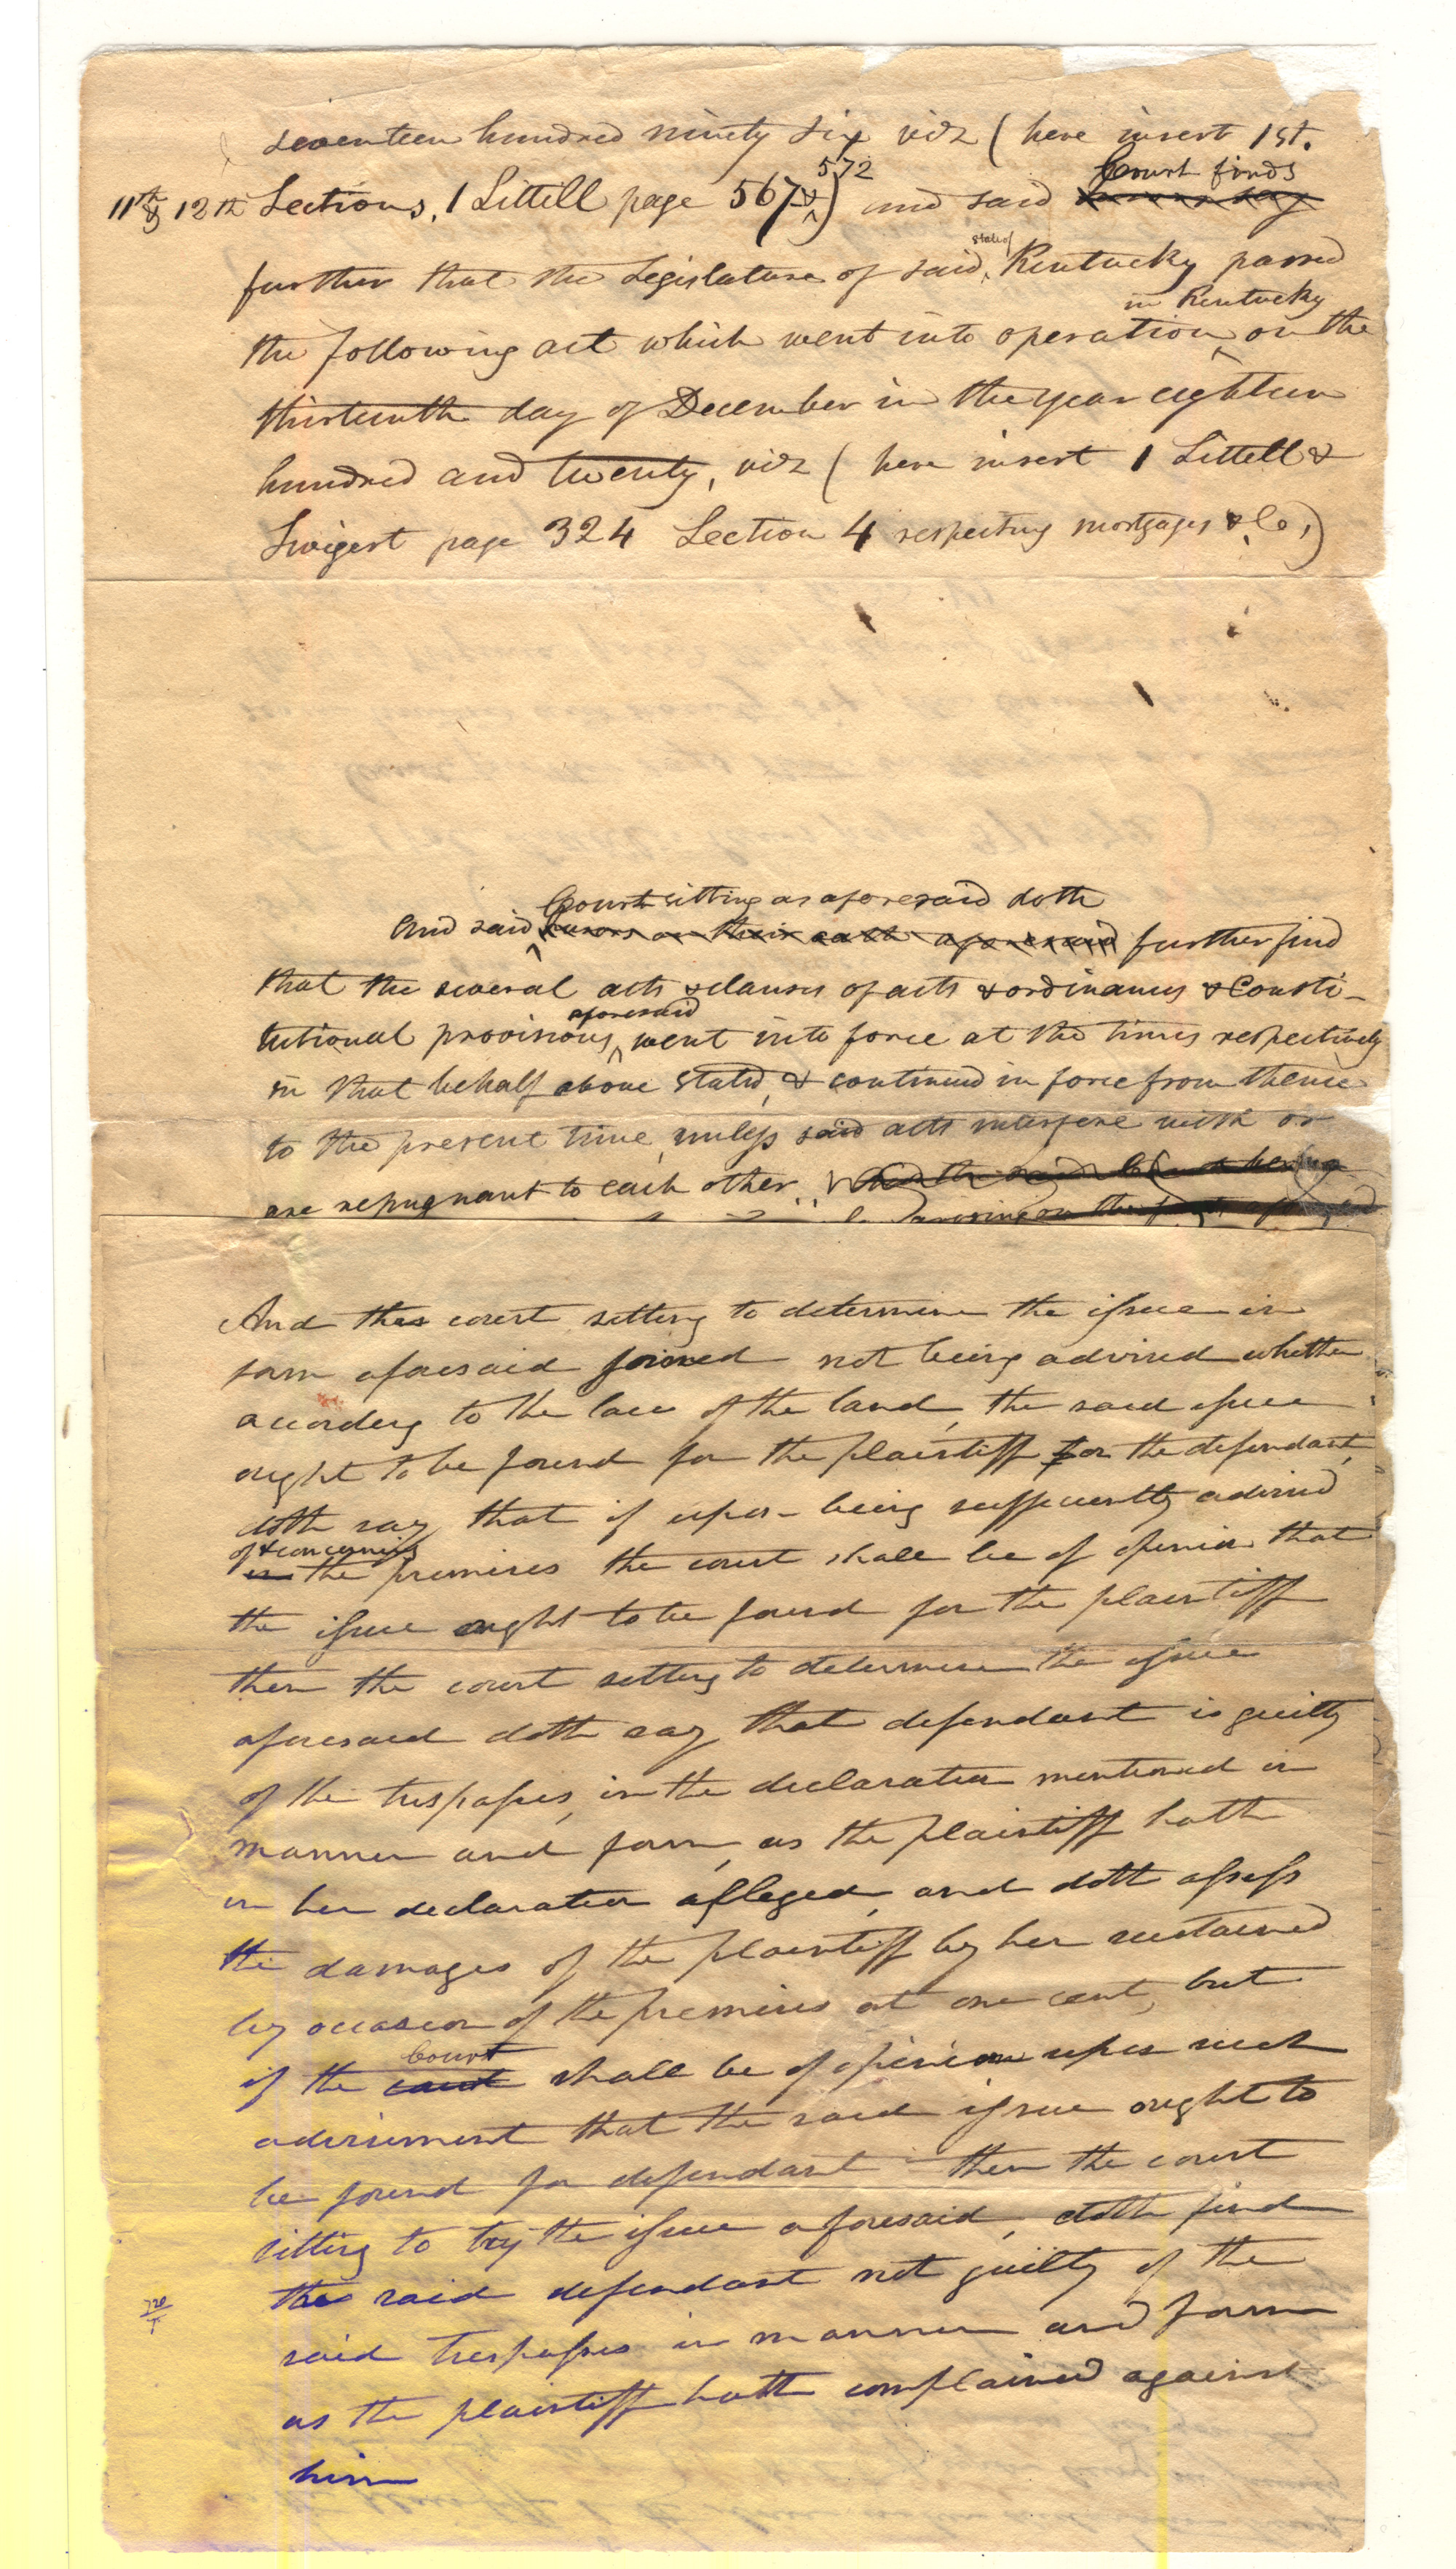 seventeen hundred ninety six vidz ( here insert 1st.
572 Court finds
11th & 12th Sections, 1 Littell page 567 & ) and said
state of
further that the Legislature of said Kentucky passed
in Kentucky
the following act which went into operation on the
thirteenth day of December in the year eighteen
hundred and twenty, vidz ( here insert 1 Littell &
Swigert page 324 Section 4 respecting mortgages &c,)
Court sitting as aforesaid doth
And said jurors on their oath aforesaid further find
that the several acts & clauses of acts & ordinances & Consti-
aforesaid
tutional provisions, went into force at the times respectively
in that behalf above stated, & continued in force from thence
to the present time, unless said acts interfere with or
are repugnant to each other.
arising on the
And the court setting to determine the issue in
form aforesaid joined not being advised whether
according to the law of the land, the said issue
ought to be found for the plaintiff or the defendant,
doth say that if upon being sufficiently advised
of & concerning
in the premises the court shall be of opinion that
the issue ought to be found for the plaintiff
then the court setting to determine the issue
aforesaid doth say that defendant is guilty
of the trespasses, in the declaration mentioned in
manner and form, as the plaintiff hath
in her declaration alleged, and doth assess
the damages of the plaintiff by her sustained
by occasion of the premises at one cent, but
Court
if the court shall be of opinion upon such
advisement that the said issue ought to
be found for defendant then the court
sitting to try the issue aforesaid, doth find
the said defendant not guilty of the
said trespasses in manner and form
as the plaintiff hath complained against
him